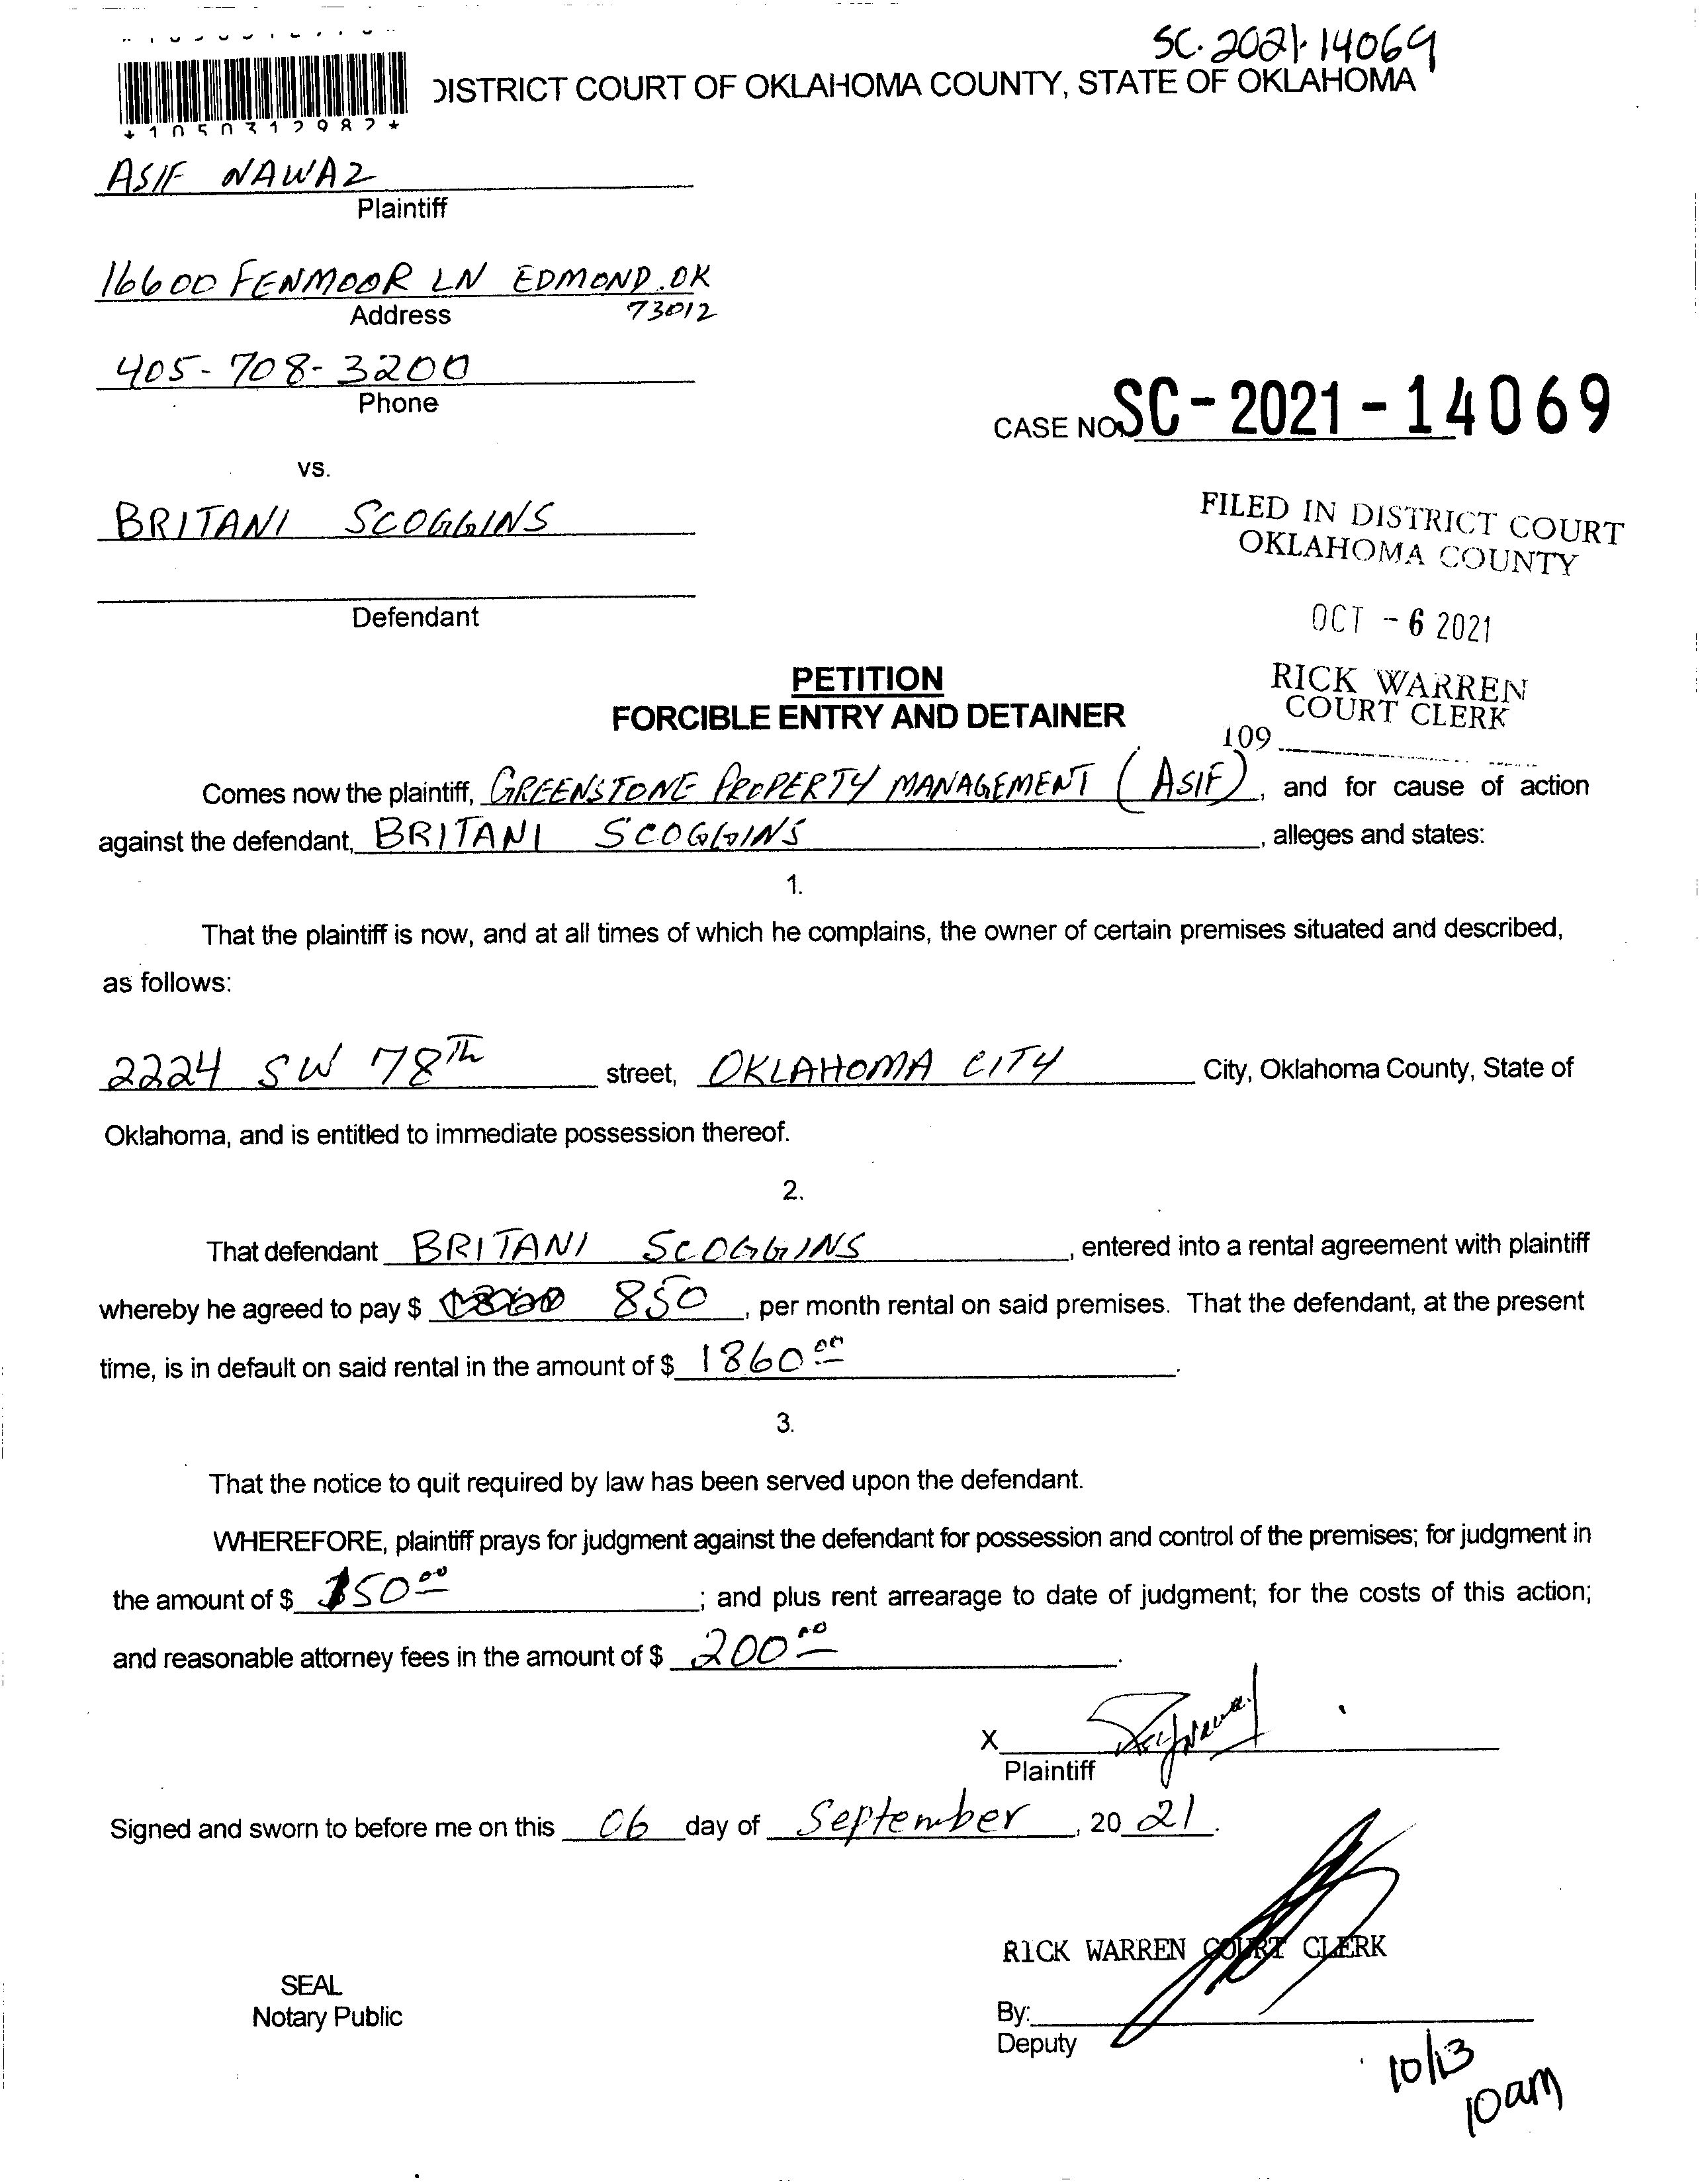 SC-2021-14069
DISTRICT COURT OF OKLAHOMA COUNTY, STATE OF OKLAHOMA
*1050312982*
ASIF NAWAZ
Plaintiff
16600 FENMOOR LN EDMOND.OK
Address 73012
405-708-3200
Phone
CASE NO. SC-2021-14069
vs.
BRITANI SCOGGINS
FILED IN DISTRICT COURT
OKLAHOMA COUNTY
Defendant
OCT - 6 2021
PETITION
FORCIBLE ENTRY AND DETAINER
RICK WARREN
COURT CLERK
109
Comes now the plaintiff, GREENSTONE PROPERTY MANAGEMENT (ASIF), and for cause of action
against the defendant, BRITANI SCOGGINS, alleges and states:
1.
That the plaintiff is now, and at all times of which he complains, the owner of certain premises situated and described,
as follows:
2224 SW 78TH street, OKLAHOMA CITY City, Oklahoma County, State of
Oklahoma, and is entitled to immediate possession thereof.
2.
That defendant BRITANI SCOGGINS, entered into a rental agreement with plaintiff
whereby he agreed to pay $ 850, per month rental on said premises. That the defendant, at the present
time, is in default on said rental in the amount of $ 1860.00.
3.
That the notice to quit required by law has been served upon the defendant.
WHEREFORE, plaintiff prays for judgment against the defendant for possession and control of the premises; for judgment in
the amount of $ ; and plus rent arrearage to date of judgment; for the costs of this action;
and reasonable attorney fees in the amount of $ 200.00.
X
Plaintiff
Signed and sworn to before me on this 06 day of September, 20 21.
RICK WARREN COURT CLERK
SEAL
Notary Public
By:
Deputy
10/13
10am